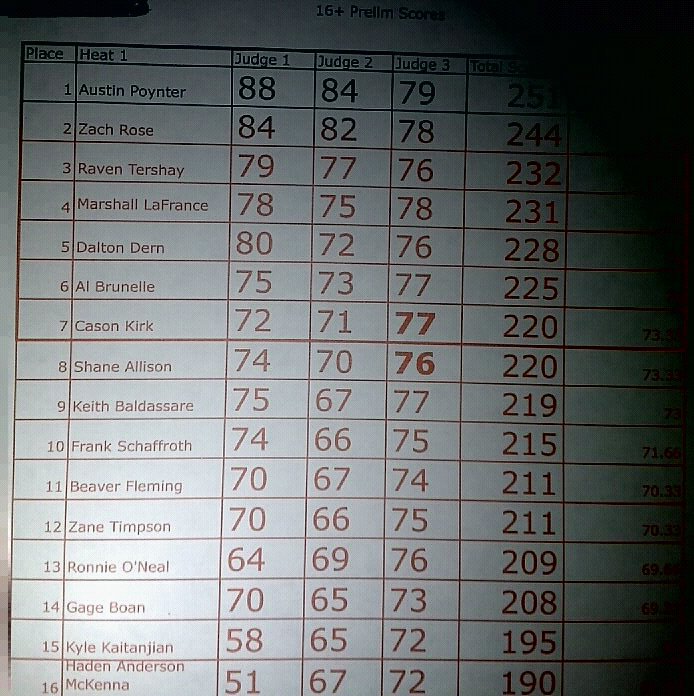 16+ Prelim Scores
Place Heat 1 Judge 1 Judge 2 Judge 3 Total
1 Austin Poynter 88 84 79 251
2 Zach Rose 84 82 78 244
3 Raven Tershay 79 77 76 232
4 Marshall LaFrance 78 75 78 231
5 Dalton Dern 80 72 76 228
6 Al Brunelle 75 73 77 225
7 Cason Kirk 72 71 77 220
8 Shane Allison 74 70 76 220
9 Keith Baldassare 75 67 77 219 73
10 Frank Schaffroth 74 66 75 215 71.66
11 Beaver Fleming 70 67 74 211 70.33
12 Zane Timpson 70 66 75 211 70.33
13 Ronnie O'Neal 64 69 76 209
14 Gage Boan 70 65 73 208
15 Kyle Kaitanjian 58 65 72 195
Haden Anderson
16 McKenna 51 67 72 190